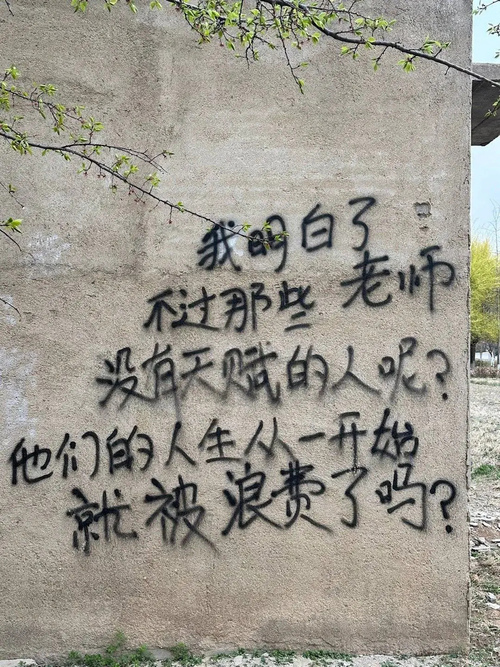 我明白了
不过那些老师
没有天赋的人呢?
他们的人生从一开始
就被浪费了吗?